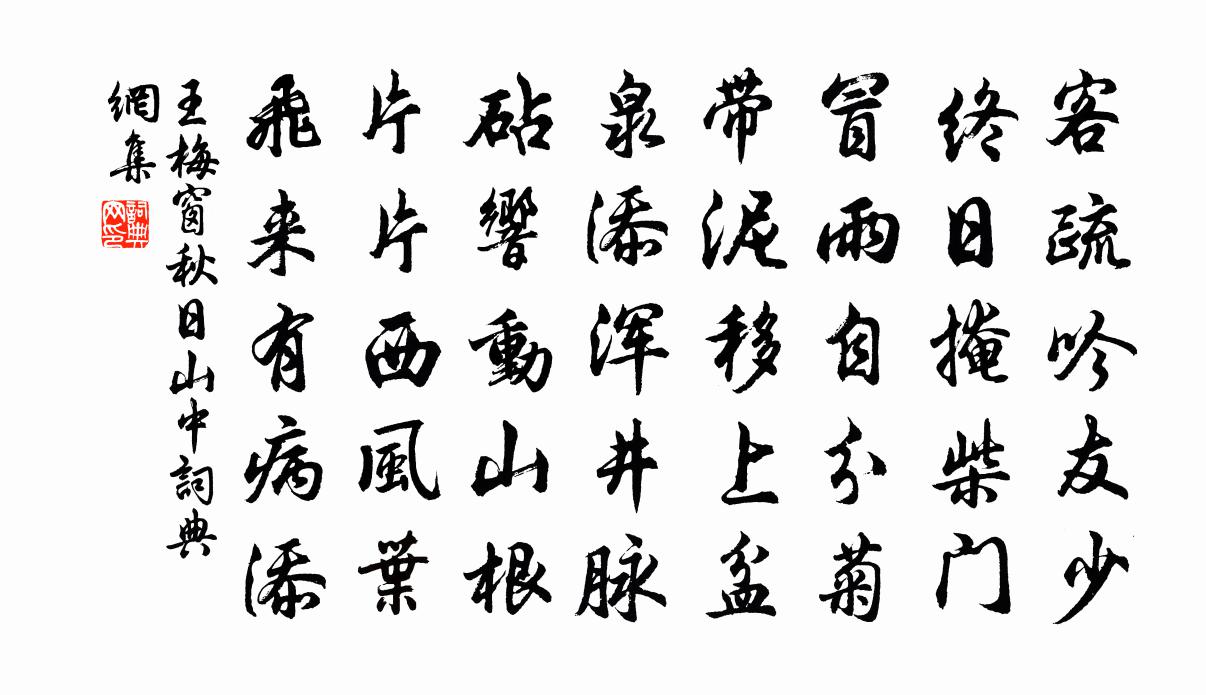 客疏吟友少
终日掩柴门
冒雨自分菊
带泥移上盆
泉添浑井脉
砧響動山根
片片西風葉
飛来有病添
王梅窗秋日山中詞典
網集
詞典
网印